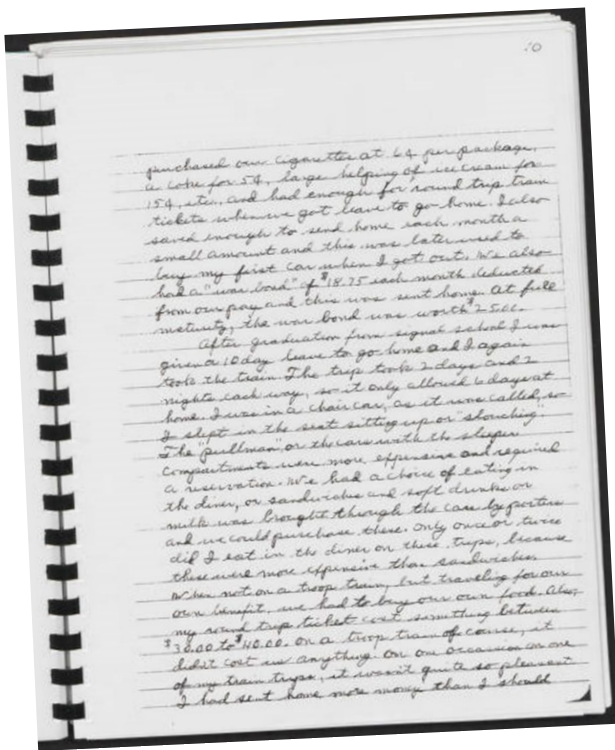 10
purchased our cigarettes at 6¢ per package,
a coke for 5¢, large helping of ice cream for
15¢, etc. and had enough for round trip train
tickets when we got leave to go home. I also
saved enough to send home each month a
small amount and this was later used to
buy my first car when I got out. We also
had a "war bond" of $18.75 each month deducted
from our pay and this was sent home. At full
maturity, the war bond was worth $25.00.
After graduation from signal school I was
given a 10 day leave to go home and I again
took the train. The trip took 2 days and 2
nights each way, so it only allowed 6 days at
home. I was in a chair car, as it was called, so
I slept in the seat sitting up or "slouching".
The "pullman" or the cars with the sleeper
compartments were more expensive and required
a reservation. We had a choice of eating in
the diner, or sandwiches and soft drinks or
milk was brought through the cars by porters
and we could purchase these. Only once or twice
did I eat in the diner on these trips, because
these were more expensive than sandwiches.
When not on a troop train, but traveling for our
own benefit, we had to buy our own food. Also,
my round trip ticket cost something between
$30.00 to $40.00. On a troop train of course, it
didn't cost us anything. On one occasion on one
of my train trips, it wasn't quite so pleasant
I had sent home more money than I should